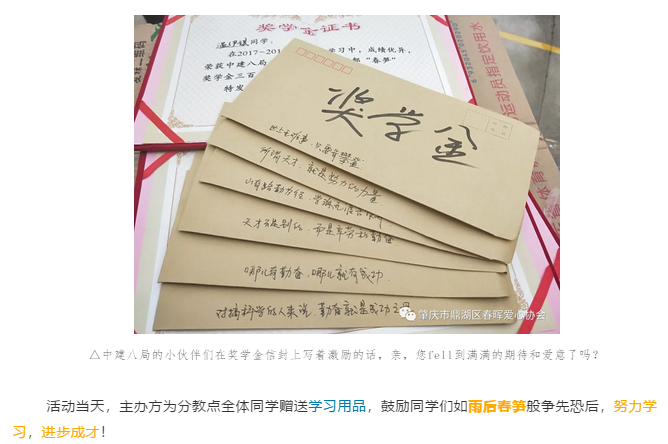 奖学金证书
温伊镁同学:
在2017-201 学习中,成绩优异,
荣获中建八局 部“春笋”
奖学金三百
特发
奖学金
世上无难事,只要肯攀登
所谓天才,就是努力的力量
山有路勤为径,学海无涯苦作舟
天才不是别的,而是辛劳和勤奋
哪儿有勤奋,哪儿就有成功
对搞科学的人来说,勤奋就是成功之母
运动员指定饮用水
肇庆市鼎湖区春晖爱心协会
△中建八局的小伙伴们在奖学金信封上写着激励的话,亲,您fell到满满的期待和爱意了吗?
活动当天,主办方为分教点全体同学赠送学习用品,鼓励同学们如雨后春笋般争先恐后,努力学
习,进步成才!